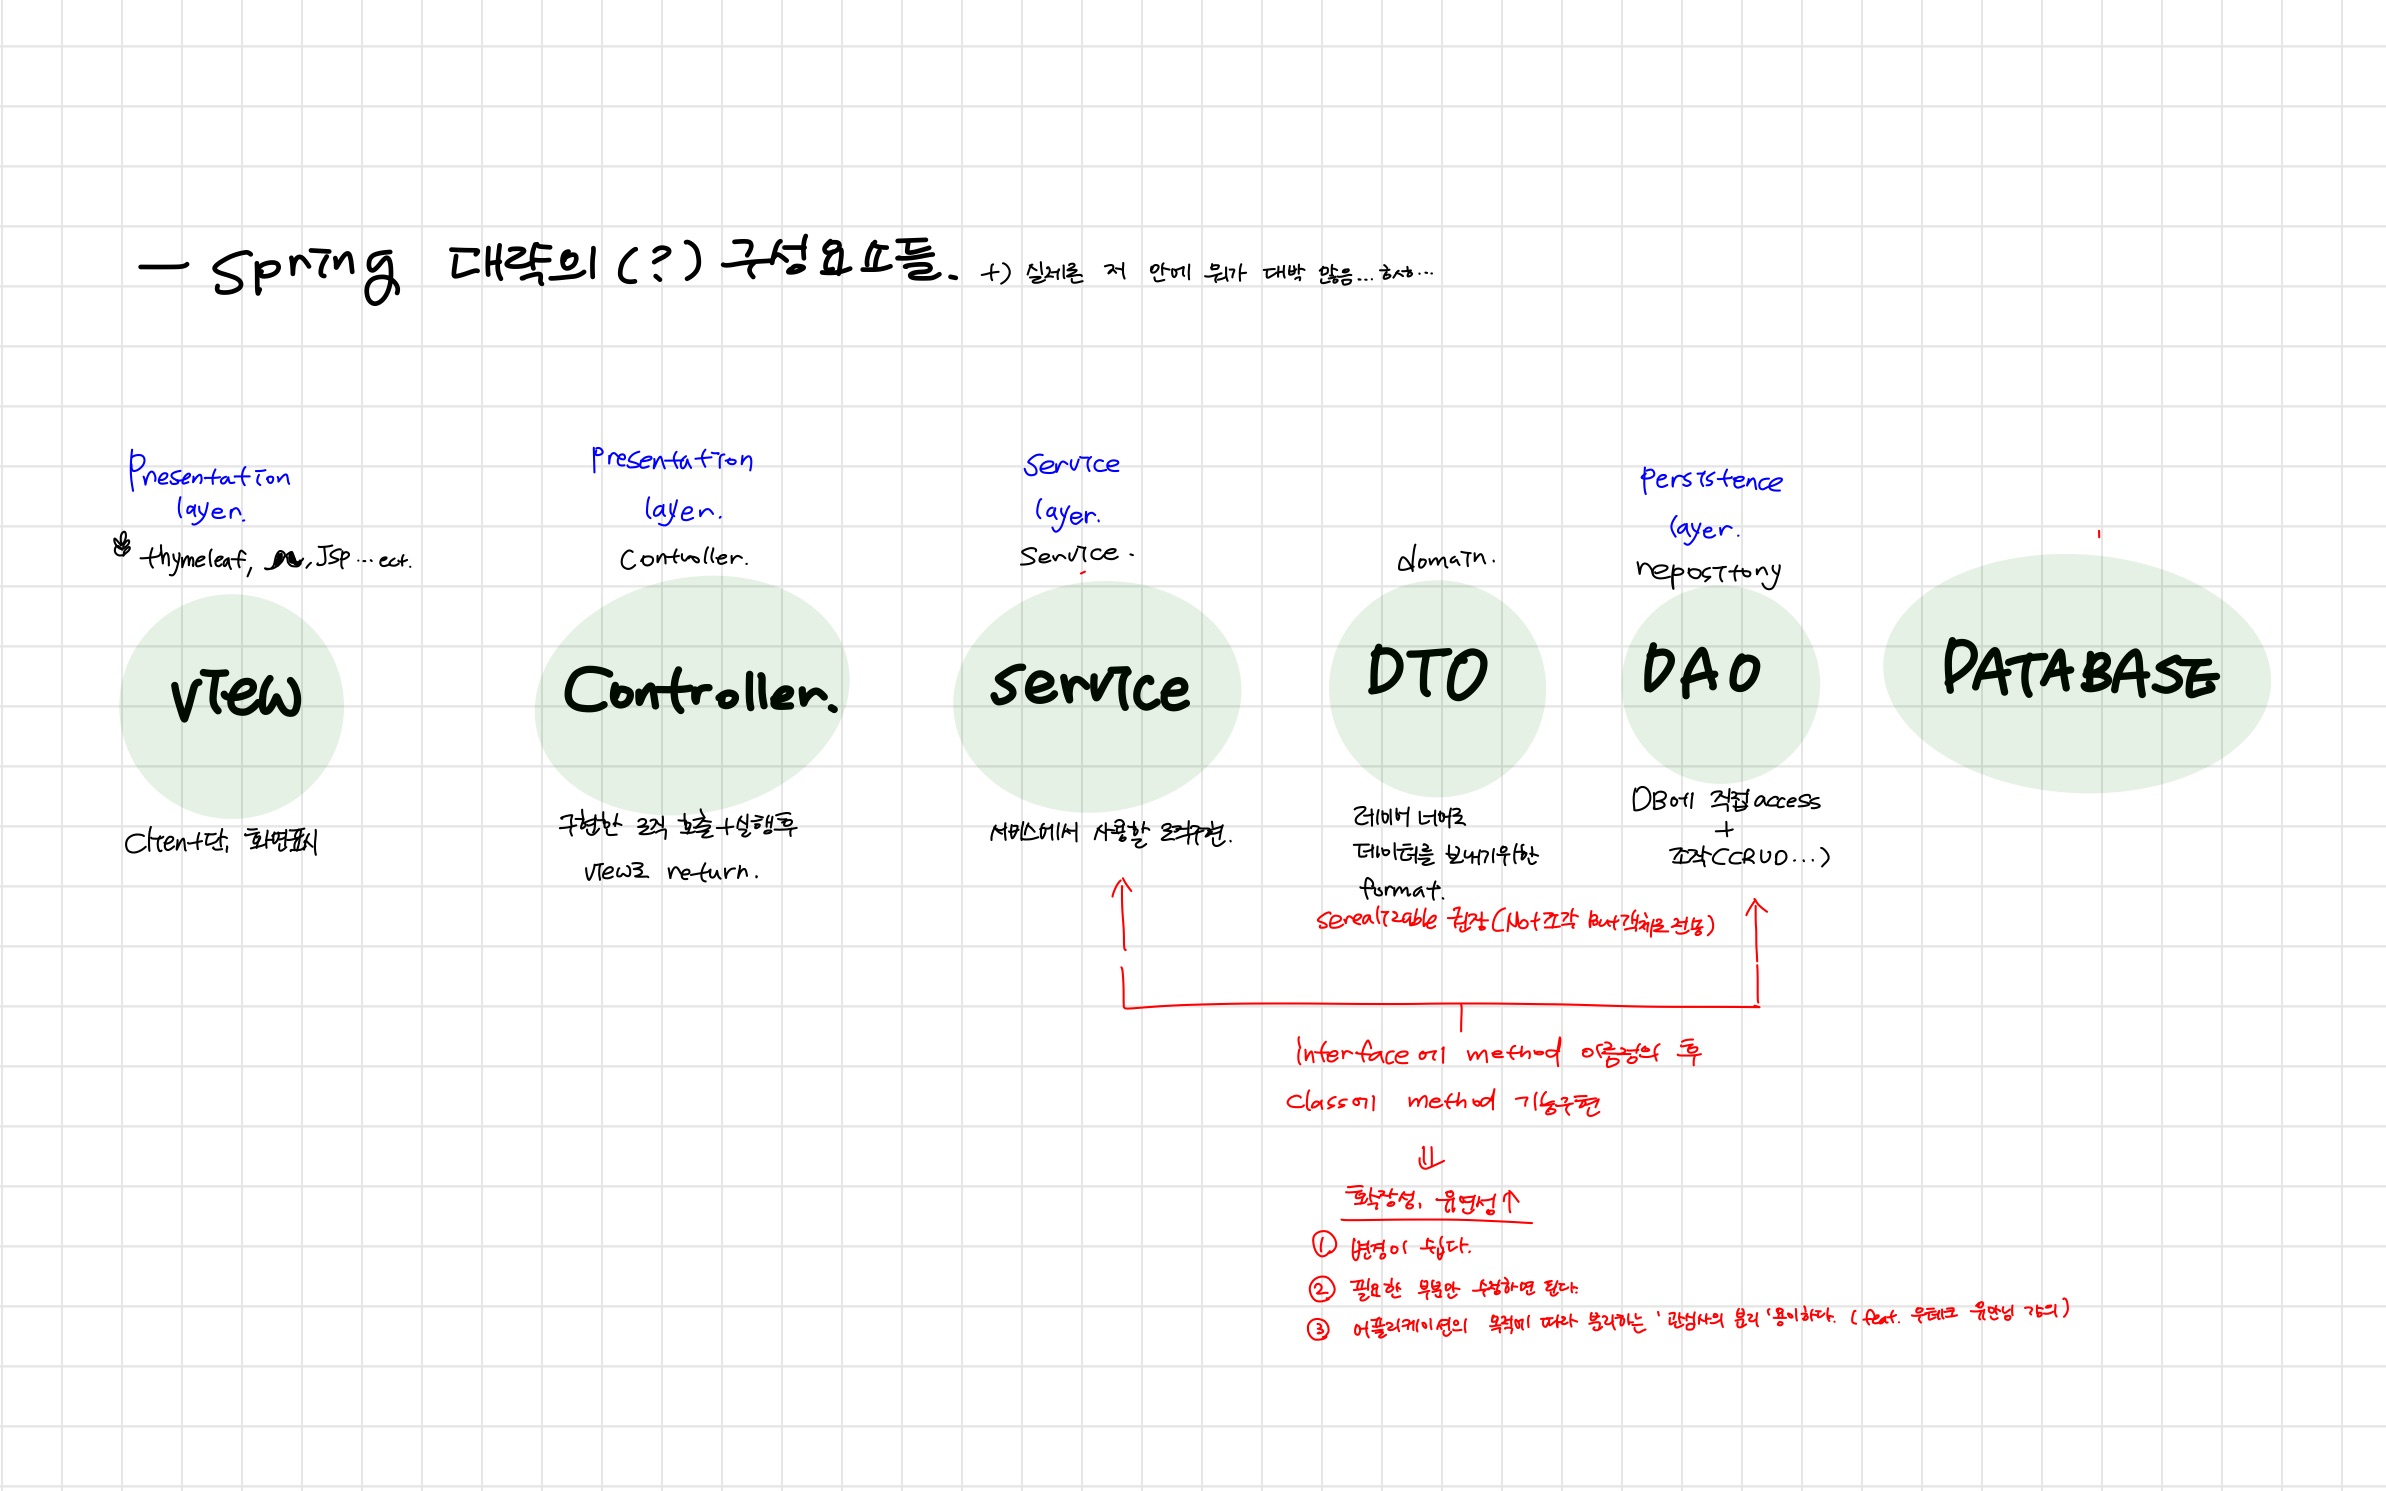 — Spring 대략의(?) 구성요소들. +) 실제론 저 안에 뭐가 대박 많음...
Presentation
layer.
thymeleaf, , JSP ... ect.
view
Client단, 화면표시
Presentation
layer.
Controller.
Controller.
구현한 로직 호출+실행후
view로 return.
Service
layer.
Service.
Service
서비스에서 사용할 로직구현.
domain.
DTO
레이어 너머로
데이터를 보내기위한
format.
serealizable 권장(Not조각 But객체로전송)
Persistence
layer.
repository
DAO
DB에 직접access
+
조작(CRUD...)
DATABASE
Interface에 method 이름정의 후
Class에 method 기능구현
⇓
확장성, 유연성↑
① 변경이 쉽다.
② 필요한 부분만 수정하면 된다.
③ 어플리케이션의 목적에 따라 분리하는 '관심사의 분리' 용이하다. (feat. 우테코 유안님 강의)